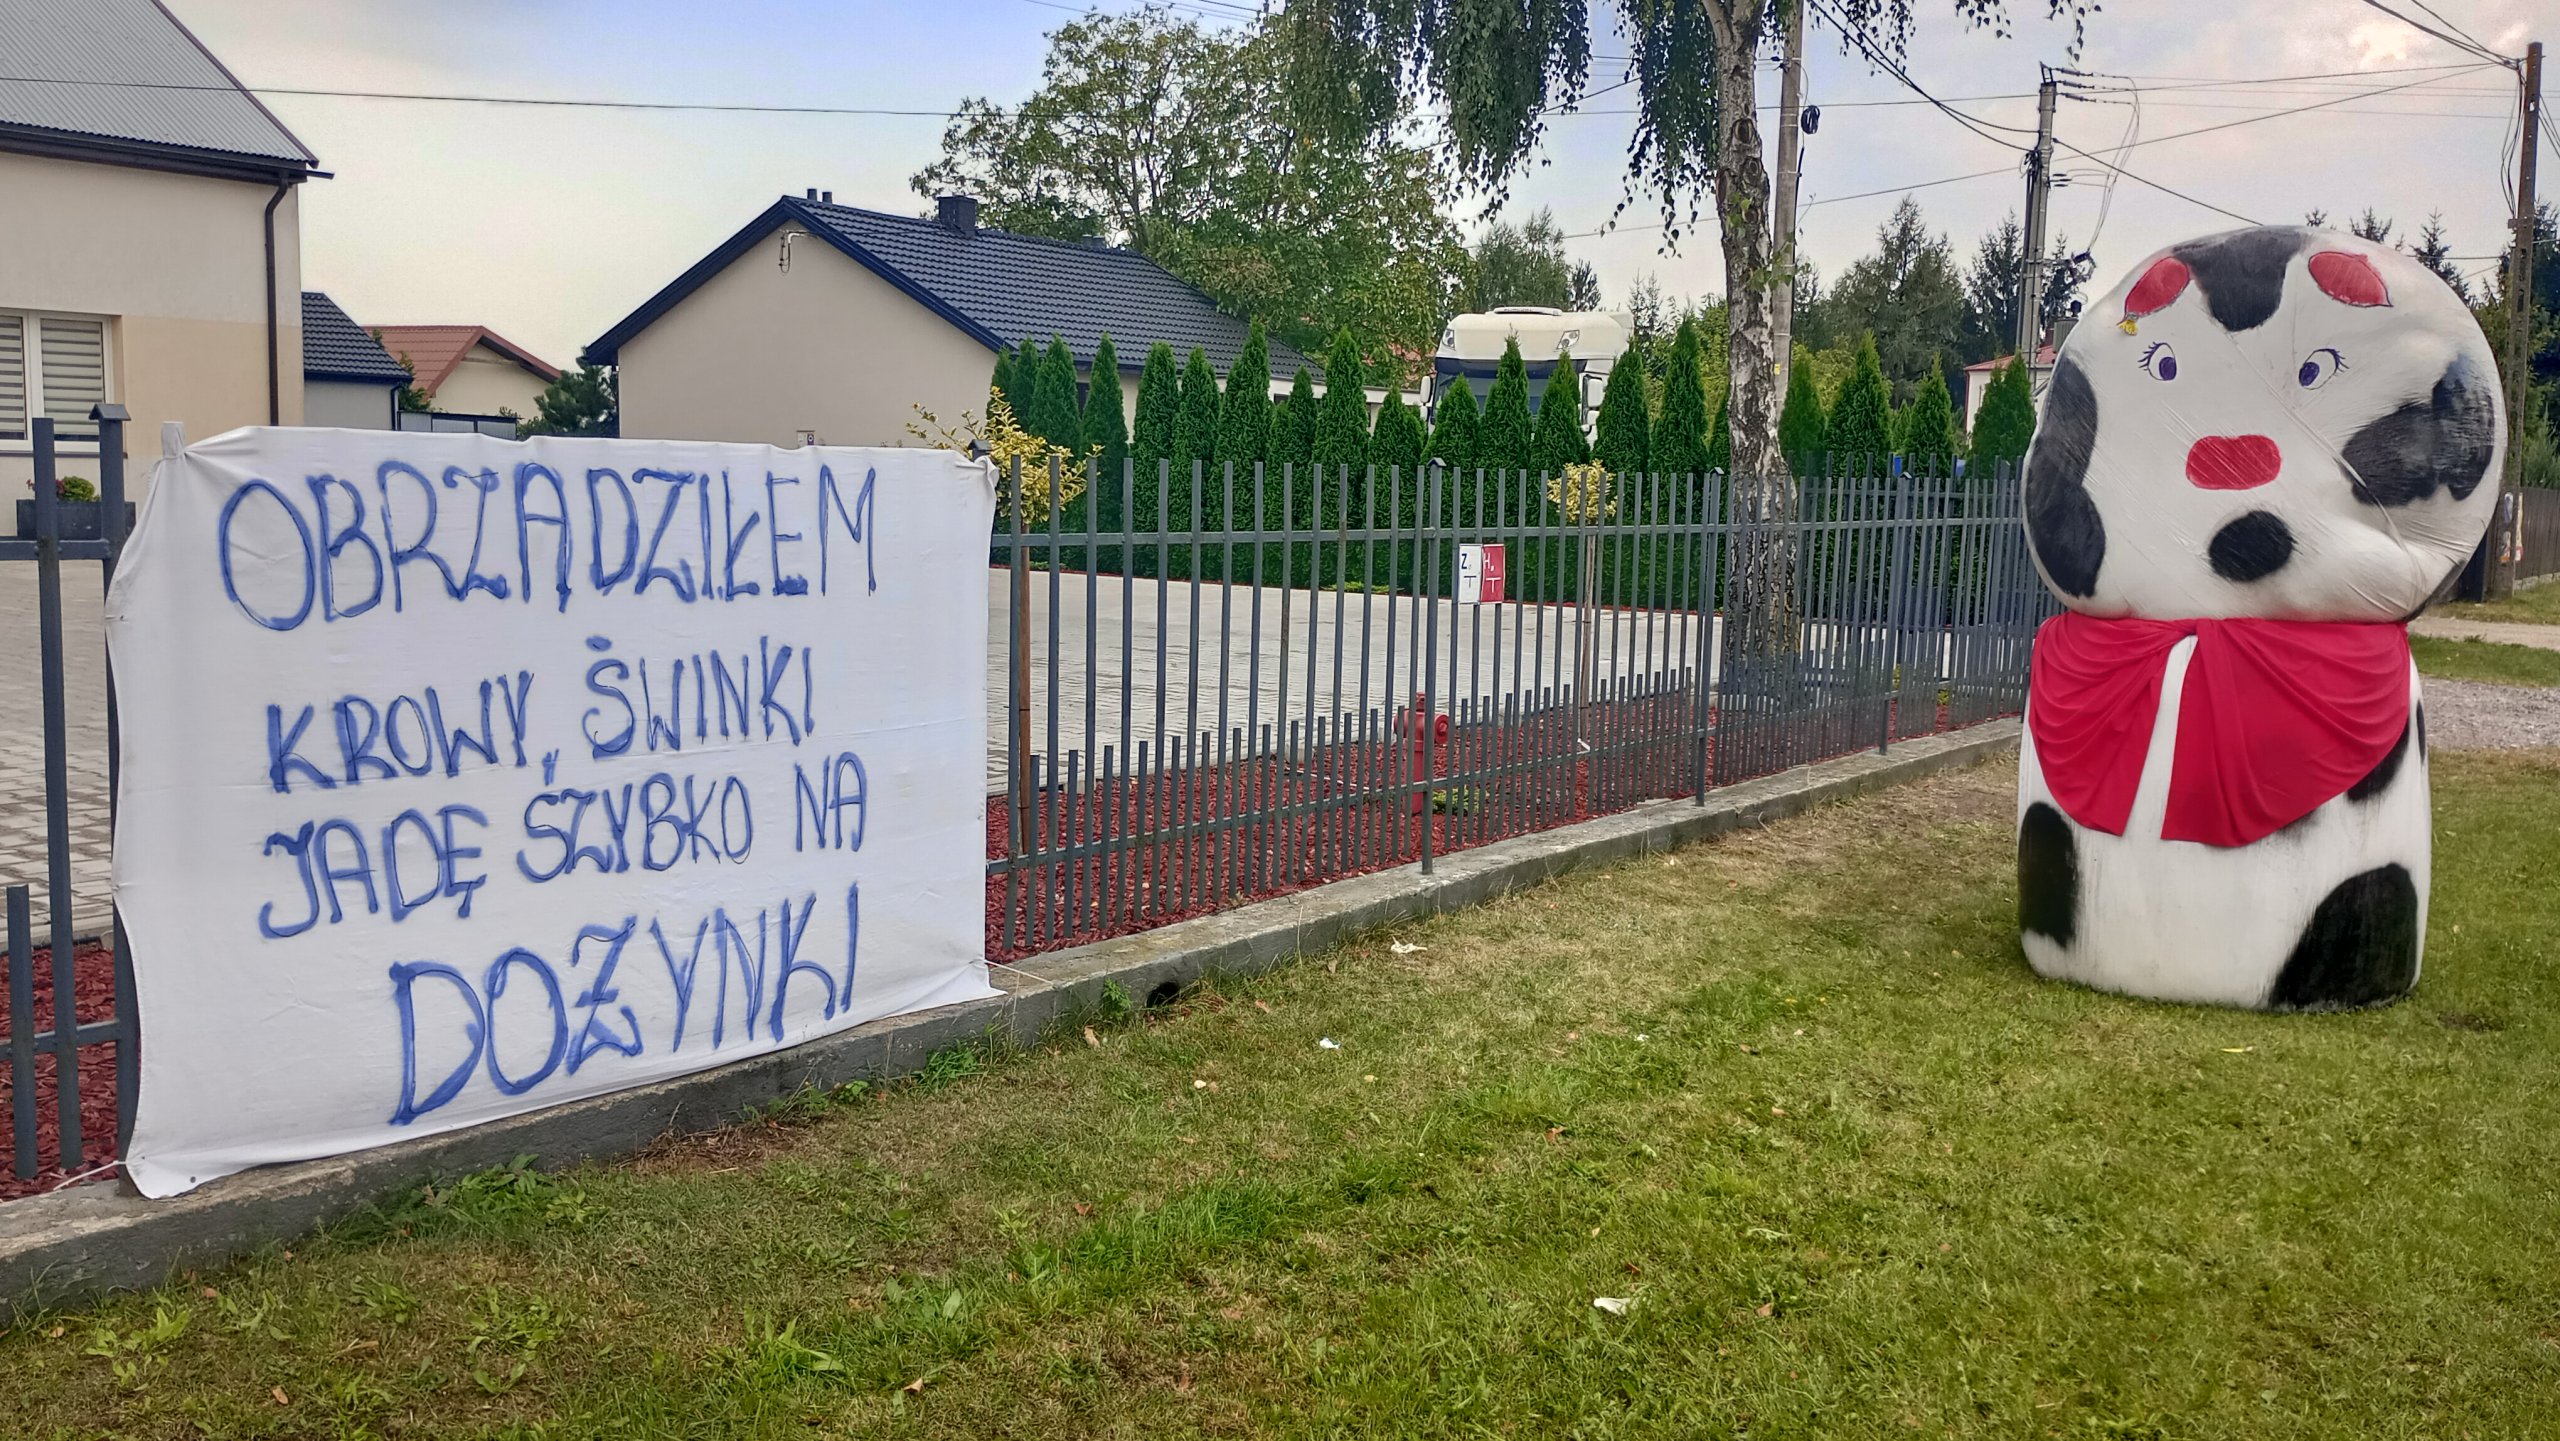 OBRZĄDZIŁEM
KROWY, ŚWINKI
JADĘ SZYBKO NA
DOŻYNKI
Z.
H.